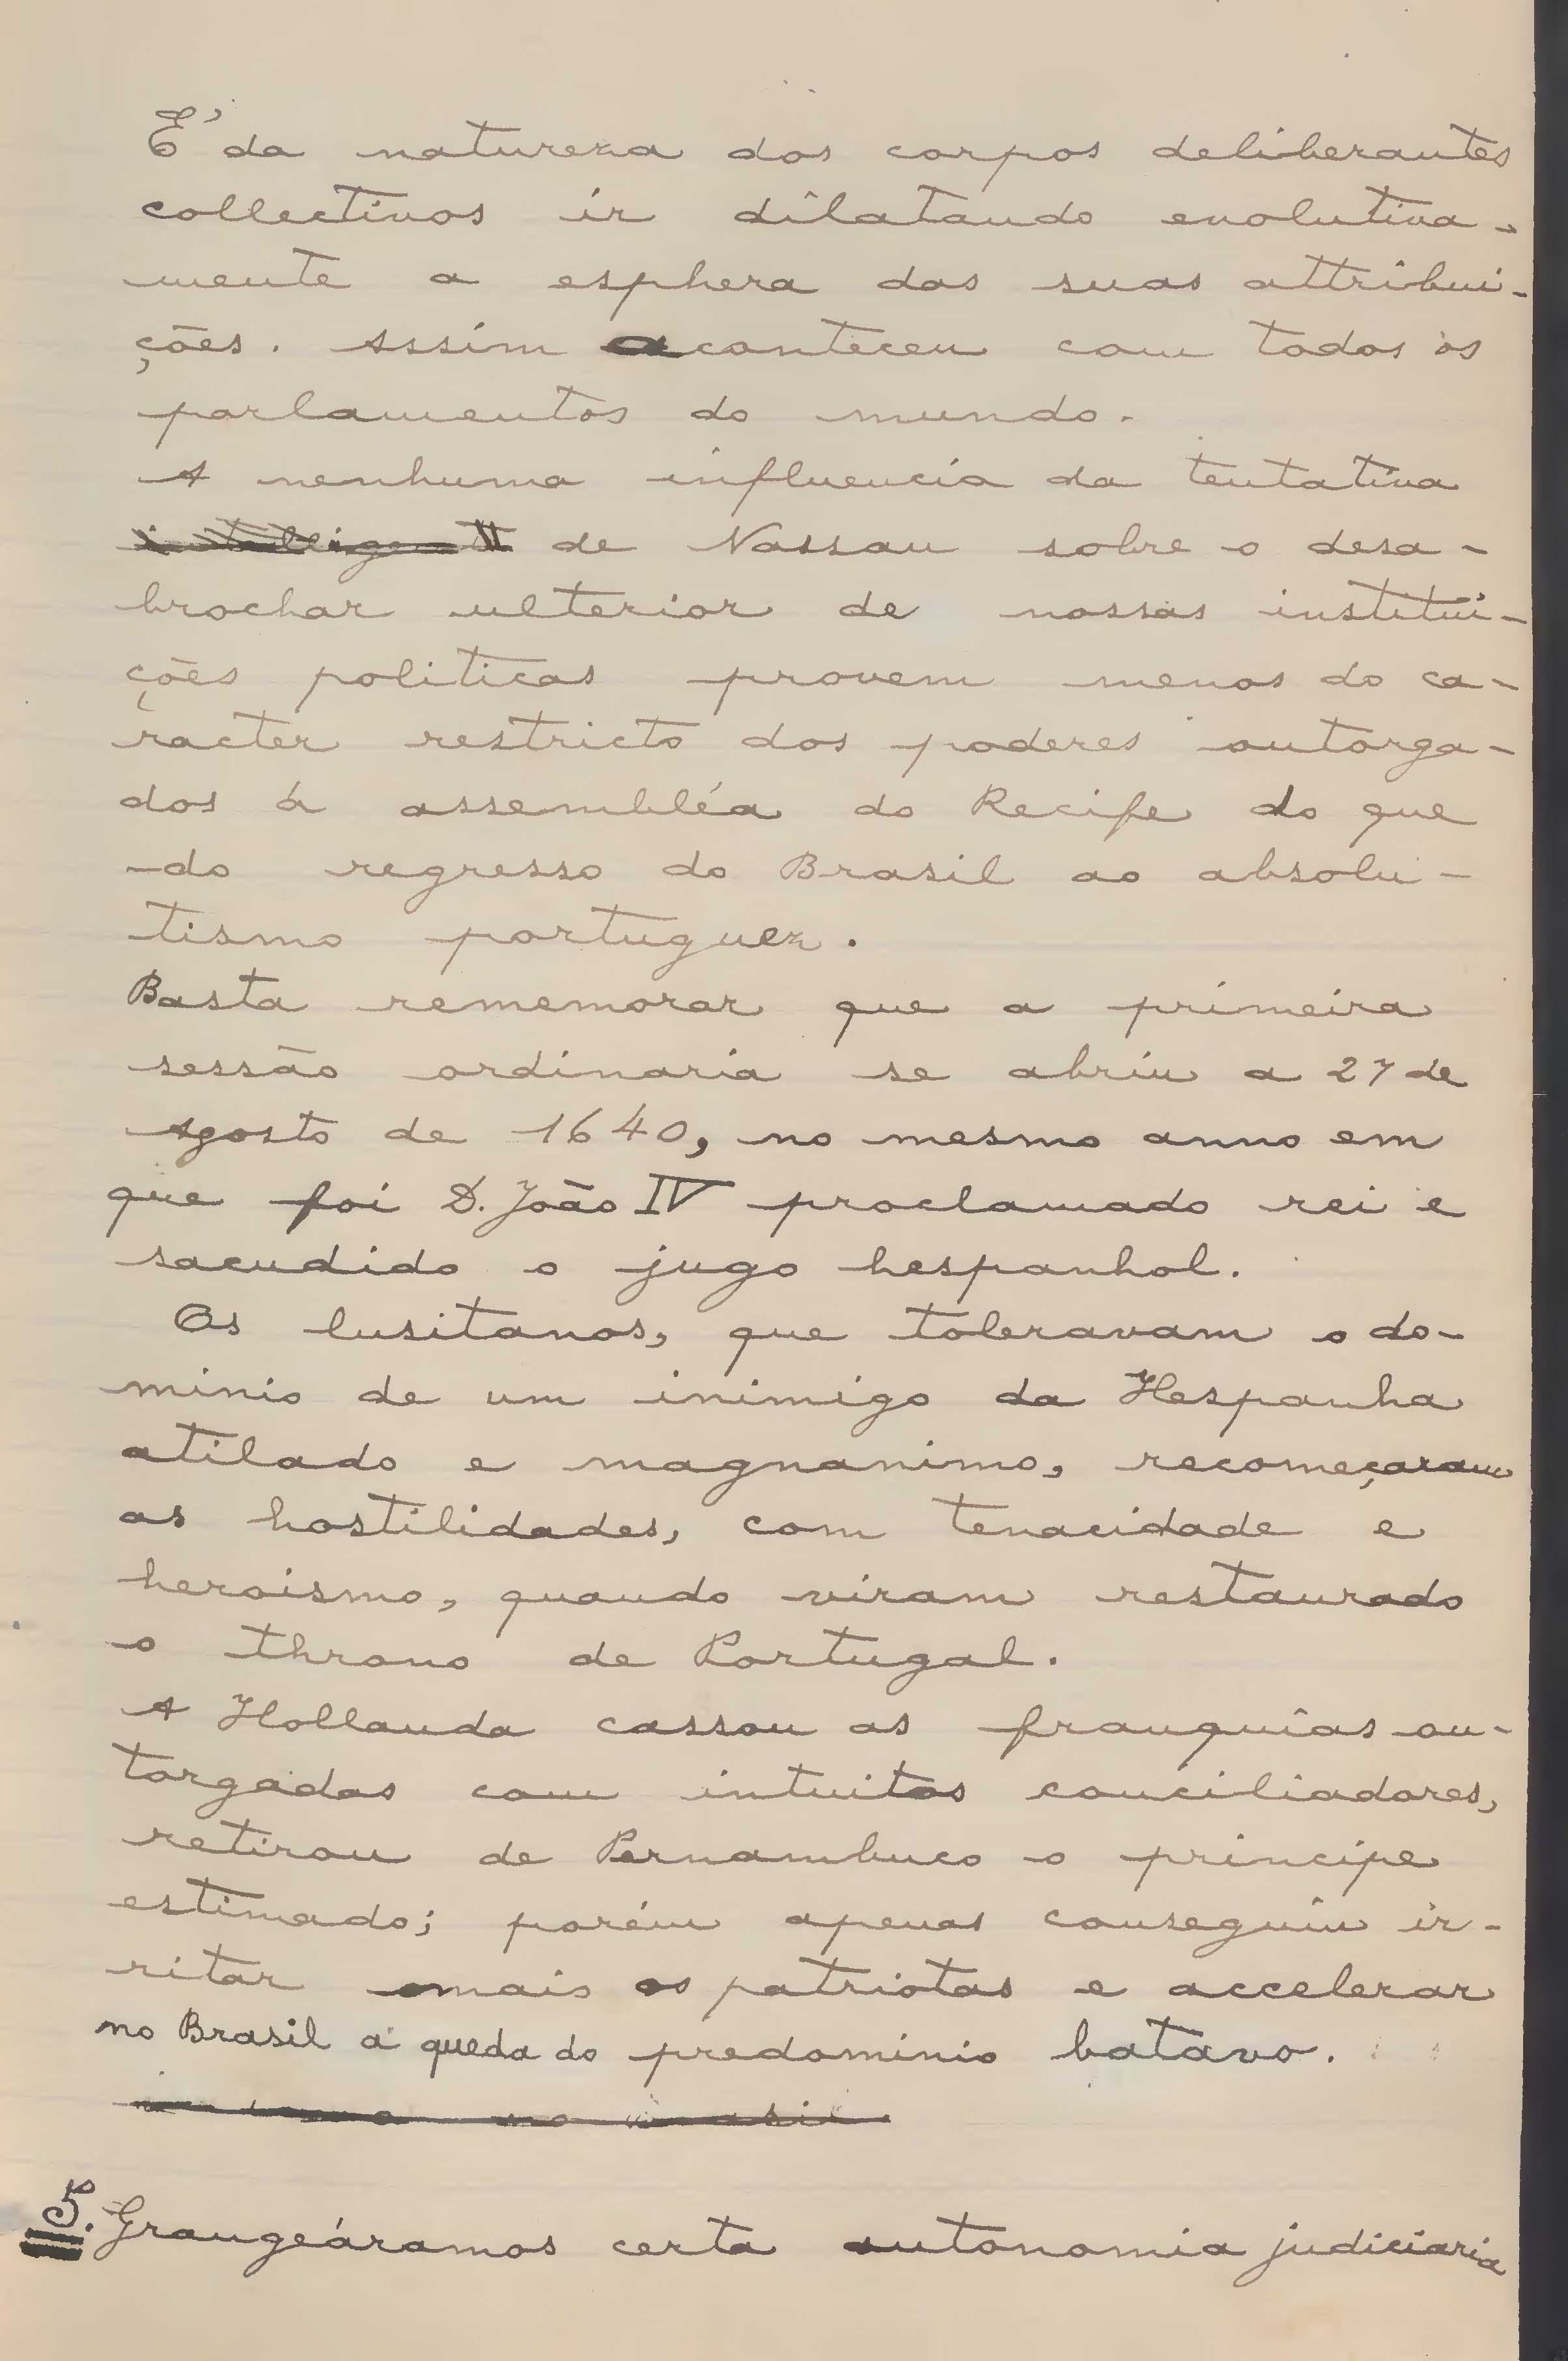 E' da natureza dos corpos deliberantes
collectivos ir dilatando evolutiva-
mente a esphera das suas attribui-
ções. Assim aconteceu com todos os
parlamentos do mundo.
A nenhuma influencia da tentativa
de Nassau sobre o desa-
brochar ulterior de nossas institui-
ções politicas provem menos do ca-
racter restricto dos poderes outorga-
dos á assembléa do Recife do que
-do regresso do Brasil ao absolu-
tismo portuguez.
Basta rememorar que a primeira
sessão ordinaria se abriu a 27 de
Agosto de 1640, no mesmo anno em
que foi D. João IV proclamado rei e
sacudido o jugo hespanhol.
Os lusitanos, que toleravam o do-
minio de um inimigo da Hespanha
atilado e magnanimo, recomeçaram
as hostilidades, com tenacidade e
heroismo, quando viram restaurado
o throno de Portugal.
A Hollanda cassou as franquias ou-
torgadas com intuitos conciliadores,
retirou de Pernambuco o principe
estimado; porém apenas conseguiu ir-
ritar mais os patriotas e accelerar
no Brasil a queda do predominio batavo.
5. Grangeáramos certa autonomia judiciaria